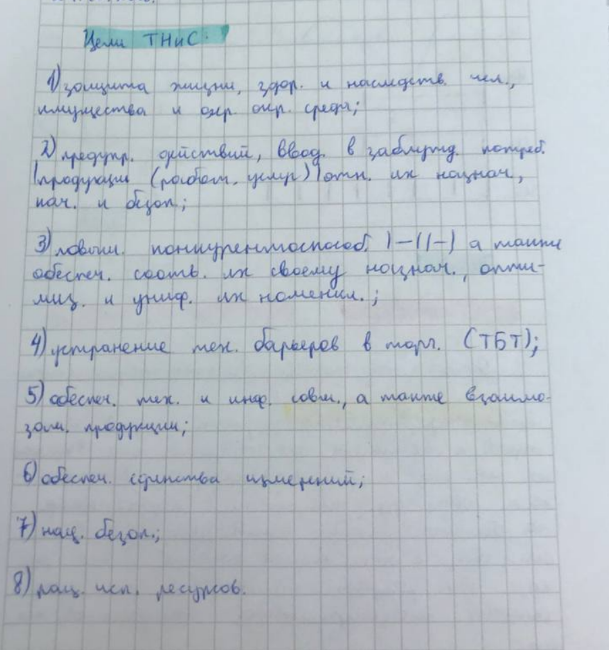 Цели ТНиС.
1) защита жизни, здор. и наследств. чел.,
имущества и охр. окр. среды;
2) предупр. действий, ввод. в заблужд. потреб.
|продукции (работ, услуг)| отн. их назнач.,
кач. и безоп.;
3) повыш. конкурентоспособ. |—(|—) а также
обеспеч. соотв. их своему назнач., опти-
миз. и униф. их номенкл.;
4) устранение тех. барьеров в торг. (ТБТ);
5) обеспеч. тех. и инф. совм., а также взаимо-
зам. продукции;
6) обеспеч. единства измерений;
7) нац. безоп.;
8) рац. исп. ресурсов.